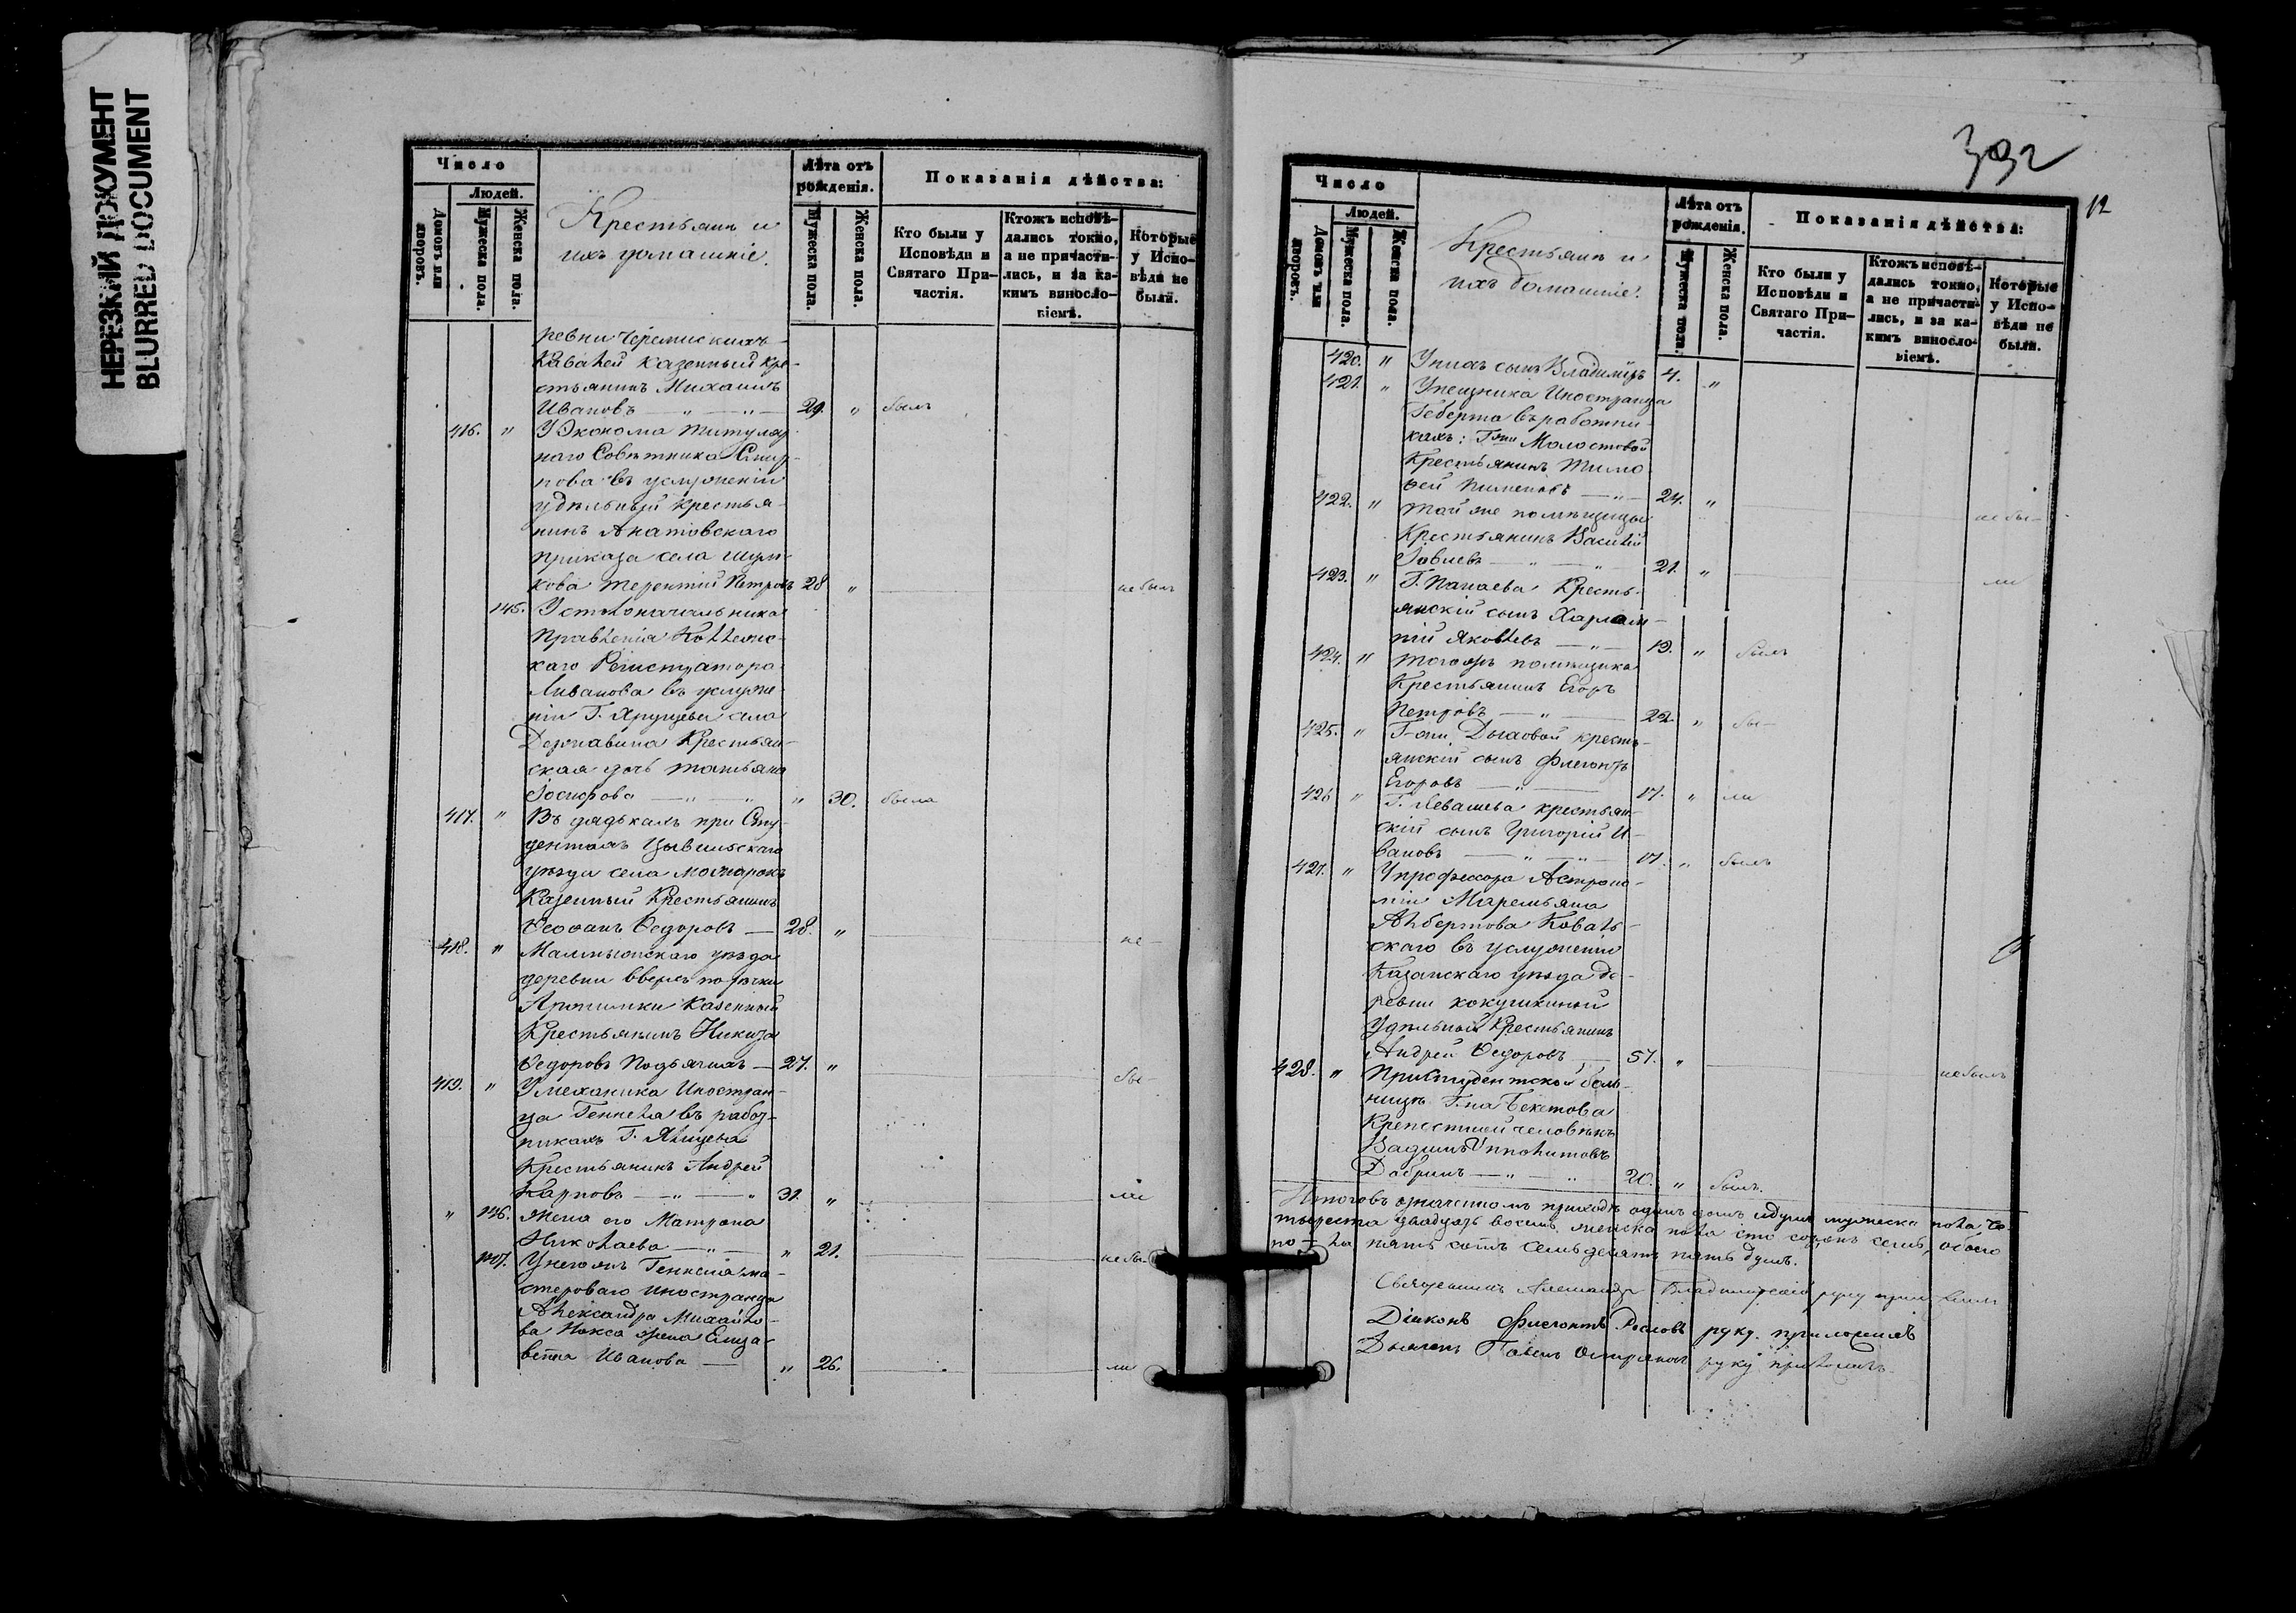 НЕРЕЗКИЙ ДОКУМЕНТ
BLURRED DOCUMENT
Число
Людей.
Домовъ или дворовъ.
Мужеска пола.
Женска пола.
Крестьянъ и
ихъ домашніе.
Лѣта отъ рожденія.
Мужеска пола.
Женска пола.
Показанія дѣйства:
Кто были у Исповѣди и Святаго Причастія.
Ктожъ исповѣдались токмо, а не причастились, и за какимъ винословіемъ.
Которые у Исповѣди не были.
ревни Черемискихъ
Кавалей казенный кре-
стьянинъ Михаилъ
Ивановъ — " — " — 29. " былъ
416. " У Эконома титуляр
наго Совѣтника Смир-
нова въ услуженіи
удѣльный крестья-
нинъ
приказа села
кова Терентій Петровъ 28 " не былъ
145. У столоначальника
Правленія Коллежс-
каго Регистратора
Ливанова въ услуже-
ніи Г. села
Державина Крестьян-
ская дочь Татьяна
Іосифова — " — " " 30. была
417. " Въ дядькахъ при Сту-
дентахъ Цывильскаго
уѣзда села
Казенный Крестьянинъ
Ѳеофанъ Ѳедоровъ — 28. " не —
418. " Малмыжскаго уѣзда
деревни вверхъ по рѣчки
казенный
Крестьянинъ Никита
Ѳедоровъ — 27. " бы —
419. " У механика Иностран-
ца Геннеля въ работ-
никахъ Г.
Крестьянинъ Андрей
Карповъ — " — " 31. " ли
" 146. жена его Матрона
Николаева — " — " 21.
147. У негожъ Геннеля ма-
стероваго иностранца
Александра Михайло-
ва жена Елиза-
вета Иванова — " 26. ли
392
12
Число
Людей.
Домовъ или дворовъ.
Мужеска пола.
Женска пола.
Крестьянъ и
ихъ домашніе.
Лѣта отъ рожденія.
Мужеска пола.
Женска пола.
Показанія дѣйства:
Кто были у Исповѣди и Святаго Причастія.
Ктожъ исповѣдались токмо, а не причастились, и за какимъ винословіемъ.
Которые у Исповѣди не были.
420. " У нихъ сынъ Владиміръ 4. "
421. " Иностранца
Геберта въ работни-
кахъ: Г-жи Молостовой
Крестьянинъ Тимо
ѳей Пименовъ — " — 24. " не бы —
422. " той же помѣщицы
Крестьянинъ Василій
— " — " — 21. " ли
423. " Г. Панаева Кресть-
янскій сынъ Харлам-
пій Яковлевъ — " — 19. " былъ
424. " тогожъ помѣщика
Крестьянинъ Егоръ
Петровъ — " — 22. " бы —
425. " Г-жи кресть-
янскій сынъ Флегонтъ
Егоровъ — " — 17. " ли
426 " Г. Левашева крестьян-
скій сынъ Григорій И-
вановъ — " — " — 17. " былъ
427. " У профессора Астроно-
міи Марьяна
Албертова Коваль-
скаго въ услуженіи
Казанскаго уѣзда де-
ревни кокушкиной
Удѣльной Крестьянинъ
Андрей Ѳедоровъ — 57. " не былъ
428. " При студентской боль-
ницѣ Г-на Бекетова
Крепостной человѣкъ
Вадимъ Ипполитовъ
— " — " 20. " былъ.
Итого въ означенномъ приходѣ одинъ домъ и душъ мужеска пола че-
тыреста двадцать восемь, женска пола сто сорокъ семь, обоего
по-ла пять сотъ семьдесятъ пять душъ.
Священникъ Александръ Владимірскій руку приложилъ
Діаконъ Флегонтъ руку приложилъ
Дьячекъ Павелъ руку приложилъ